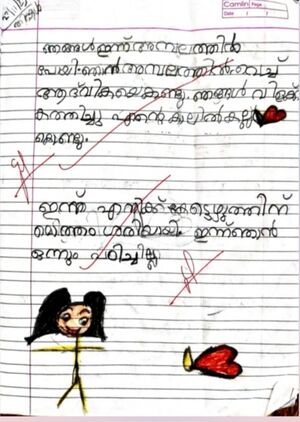 Camlin Page
Date
ഞങ്ങൾ ഇന്ന് അമ്പലത്തിൽ
പോയി. ഞാൻ അമ്പലത്തിൽ വെച്ച്
ആദ്വികയെ കണ്ടു. ഞങ്ങൾ വിളക്ക്
കത്തിച്ചു എന്റെ കാലിൽ കല്ല്
കൊണ്ടു.
ഇന്ന് എനിക്ക് കേട്ടെഴുത്തിന്
മൊത്തം ശരിയായി. ഇന്ന് ഞാൻ
ഒന്നും പഠിച്ചില്ല